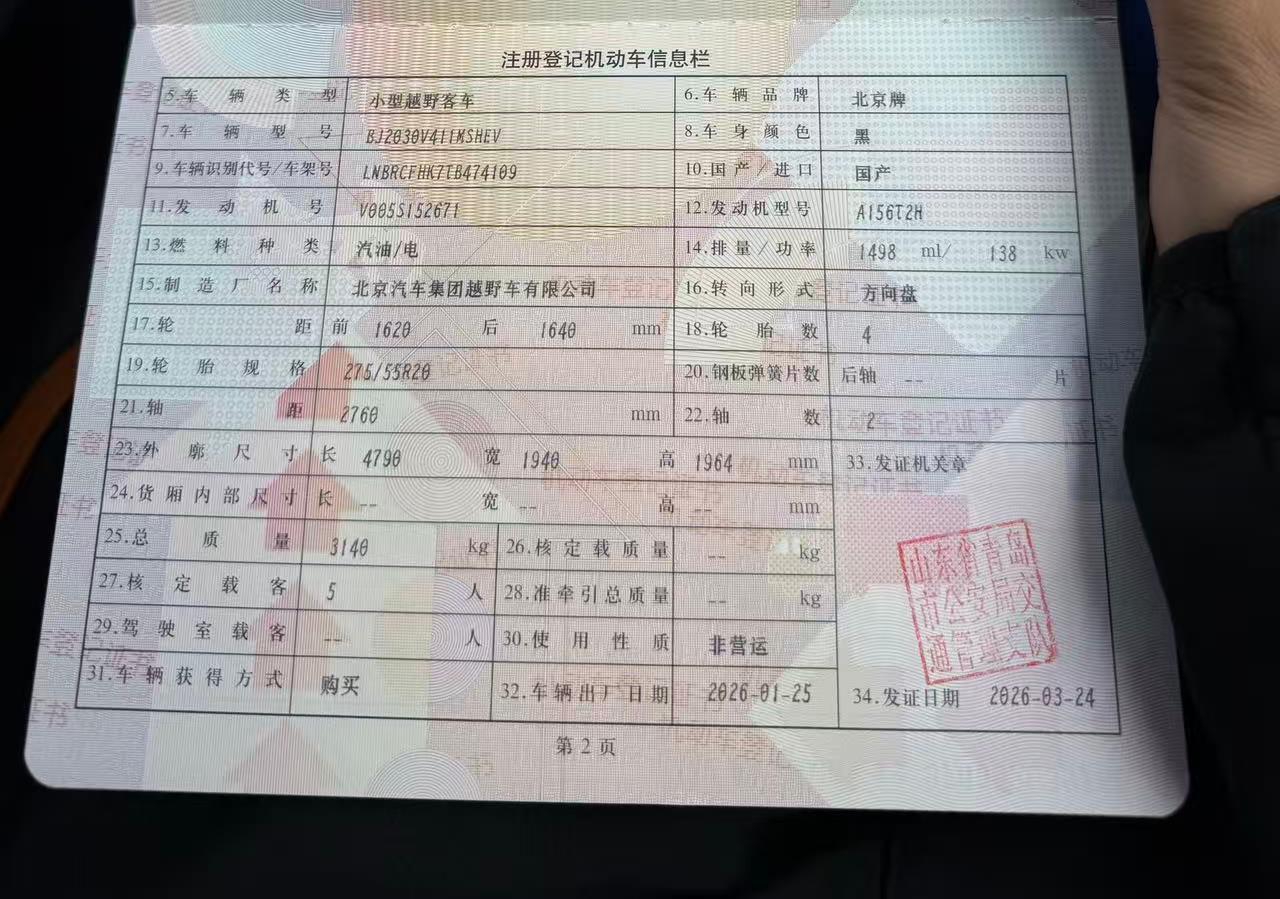 注册登记机动车信息栏
5.车辆类型 小型越野客车 6.车辆品牌 北京牌
7.车辆型号 BJ2030V411MSHEV 8.车身颜色 黑
9.车辆识别代号/车架号 LNBRCFHK7TB474109 10.国产/进口 国产
11.发动机号 V005S152671 12.发动机型号 A156T2H
13.燃料种类 汽油/电 14.排量/功率 1498 ml/ 138 kw
15.制造厂名称 北京汽车集团越野车有限公司 16.转向形式 方向盘
17.轮距 前 1620 后 1640 mm 18.轮胎数 4
19.轮胎规格 275/55R20 20.钢板弹簧片数 后轴 -- 片
21.轴距 2760 mm 22.轴数 2
23.外廓尺寸 长 4790 宽 1940 高 1964 mm 33.发证机关章
24.货厢内部尺寸 长 -- 宽 -- 高 -- mm
25.总质量 3140 kg 26.核定载质量 -- kg
27.核定载客 5 人 28.准牵引总质量 -- kg
山东省青岛
市公安局交
通管理支队
29.驾驶室载客 -- 人 30.使用性质 非营运
31.车辆获得方式 购买 32.车辆出厂日期 2026-01-25 34.发证日期 2026-03-24
第2页